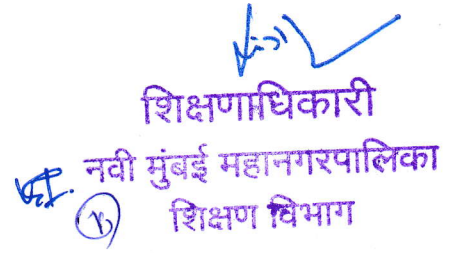 शिक्षणाधिकारी
नवी मुंबई महानगरपालिका
शिक्षण विभाग